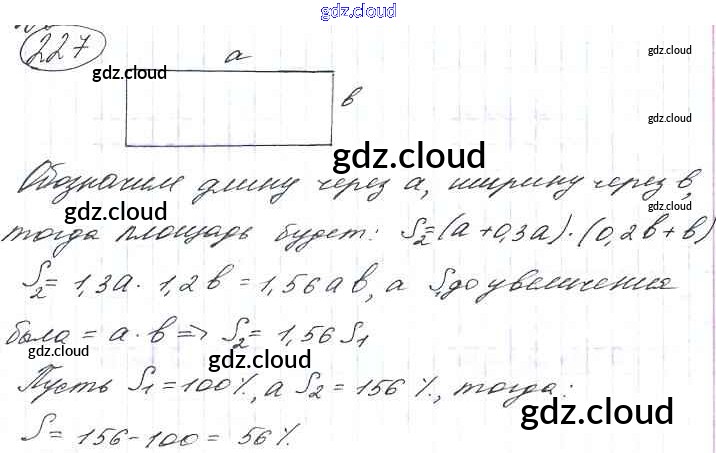 gdz.cloud
227
a
gdz.cloud
gdz.cloud
в
gdz.cloud
gdz.cloud
Обозначим длину через a, ширину через в,
gdz.cloud
gdz.cloud
тогда площадь будет: S₂=(a+0,3a)·(0,2в+в)
gdz.cloud
S₂=1,3a·1,2в=1,56aв, а S₁ до увеличения
была = a·в => S₂=1,56 S₁
gdz.cloud
gdz.cloud
Пусть S₁=100%, а S₂=156%, тогда:
gdz.cloud
S=156-100=56%.